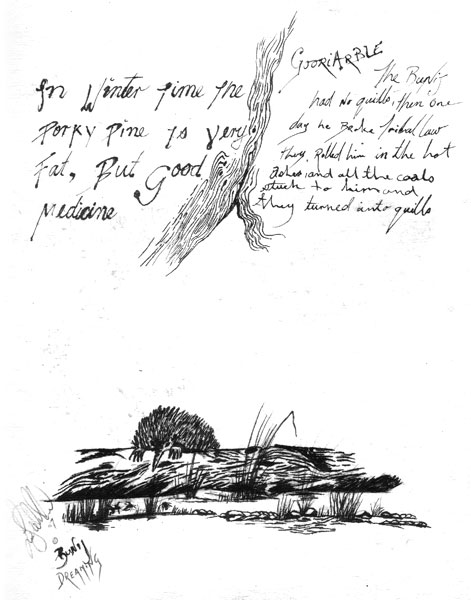 In Winter time the
Porky Pine is very
Fat, But Good
Medicine
GooRiARBLE
The Bunij
had no quills, then one
day he Broke Tribal law
They, Rolled him in the hot
ashes and all the coals
stuck to him and
they turned into quills
Bunij
DREAMING